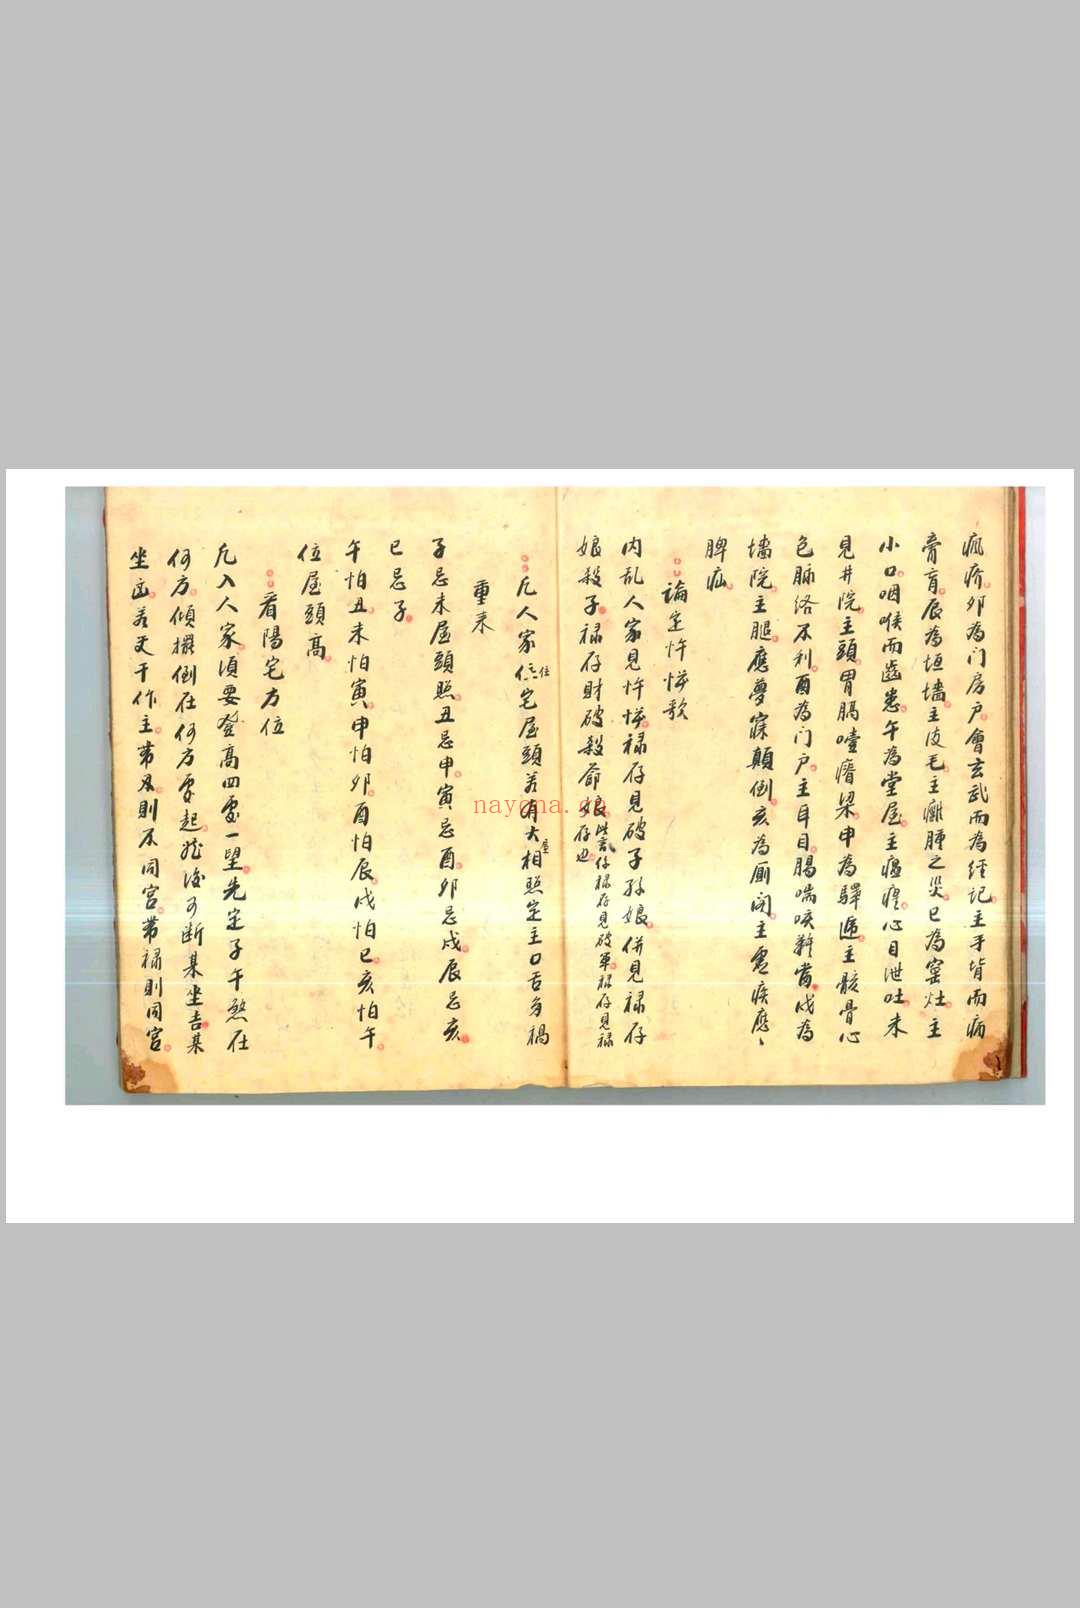 瘋疥卯為门房户會玄武而為经記主手背而病
膏肓辰為垣墻主皮毛主癰腫之災巳為窑灶主
小口咽喉而齒患午為堂屋主瘟疸心目泄吐未
見井院主頭胃膈噎瘠梁申為驛逓主骸骨心
色脉络不利酉為门户主耳目腸喘咳難當戌為
墻院主腿應夢寐顛倒亥為厠闭主虚疾應
脾疝
論定忤悖歌
内乱人家見忤悖禄存見破子孫娘併見禄存
娘殺子禄存財破殺爺娘此言仔禄存見破軍禄存見禄存也
凡人家住宅屋頭若有大屋相照定主口舌多禍
重來
子忌未屋頭照丑忌申寅忌酉卯忌戌辰忌亥
巳忌子
午怕丑未怕寅申怕卯酉怕辰戌怕巳亥怕午
位屋頭高
看陽宅方位
凡入人家須要登高四處一望先定子午煞在
何方傾摆倒在何方屋起然後可断某坐吉某
坐凶若天干作主带及則及同宫带禄則同宫
nayona.cn